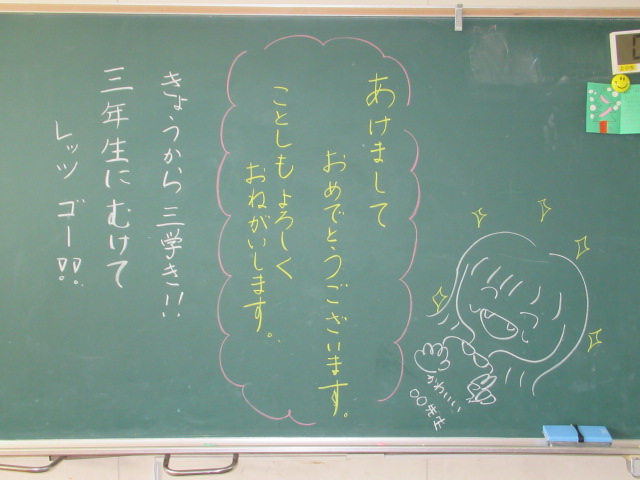 あけまして
おめでとうございます。
ことしもよろしく
おねがいします。
きょうから三学き!!
三年生にむけて
レッツ ゴー!!
かわいい
○○先生